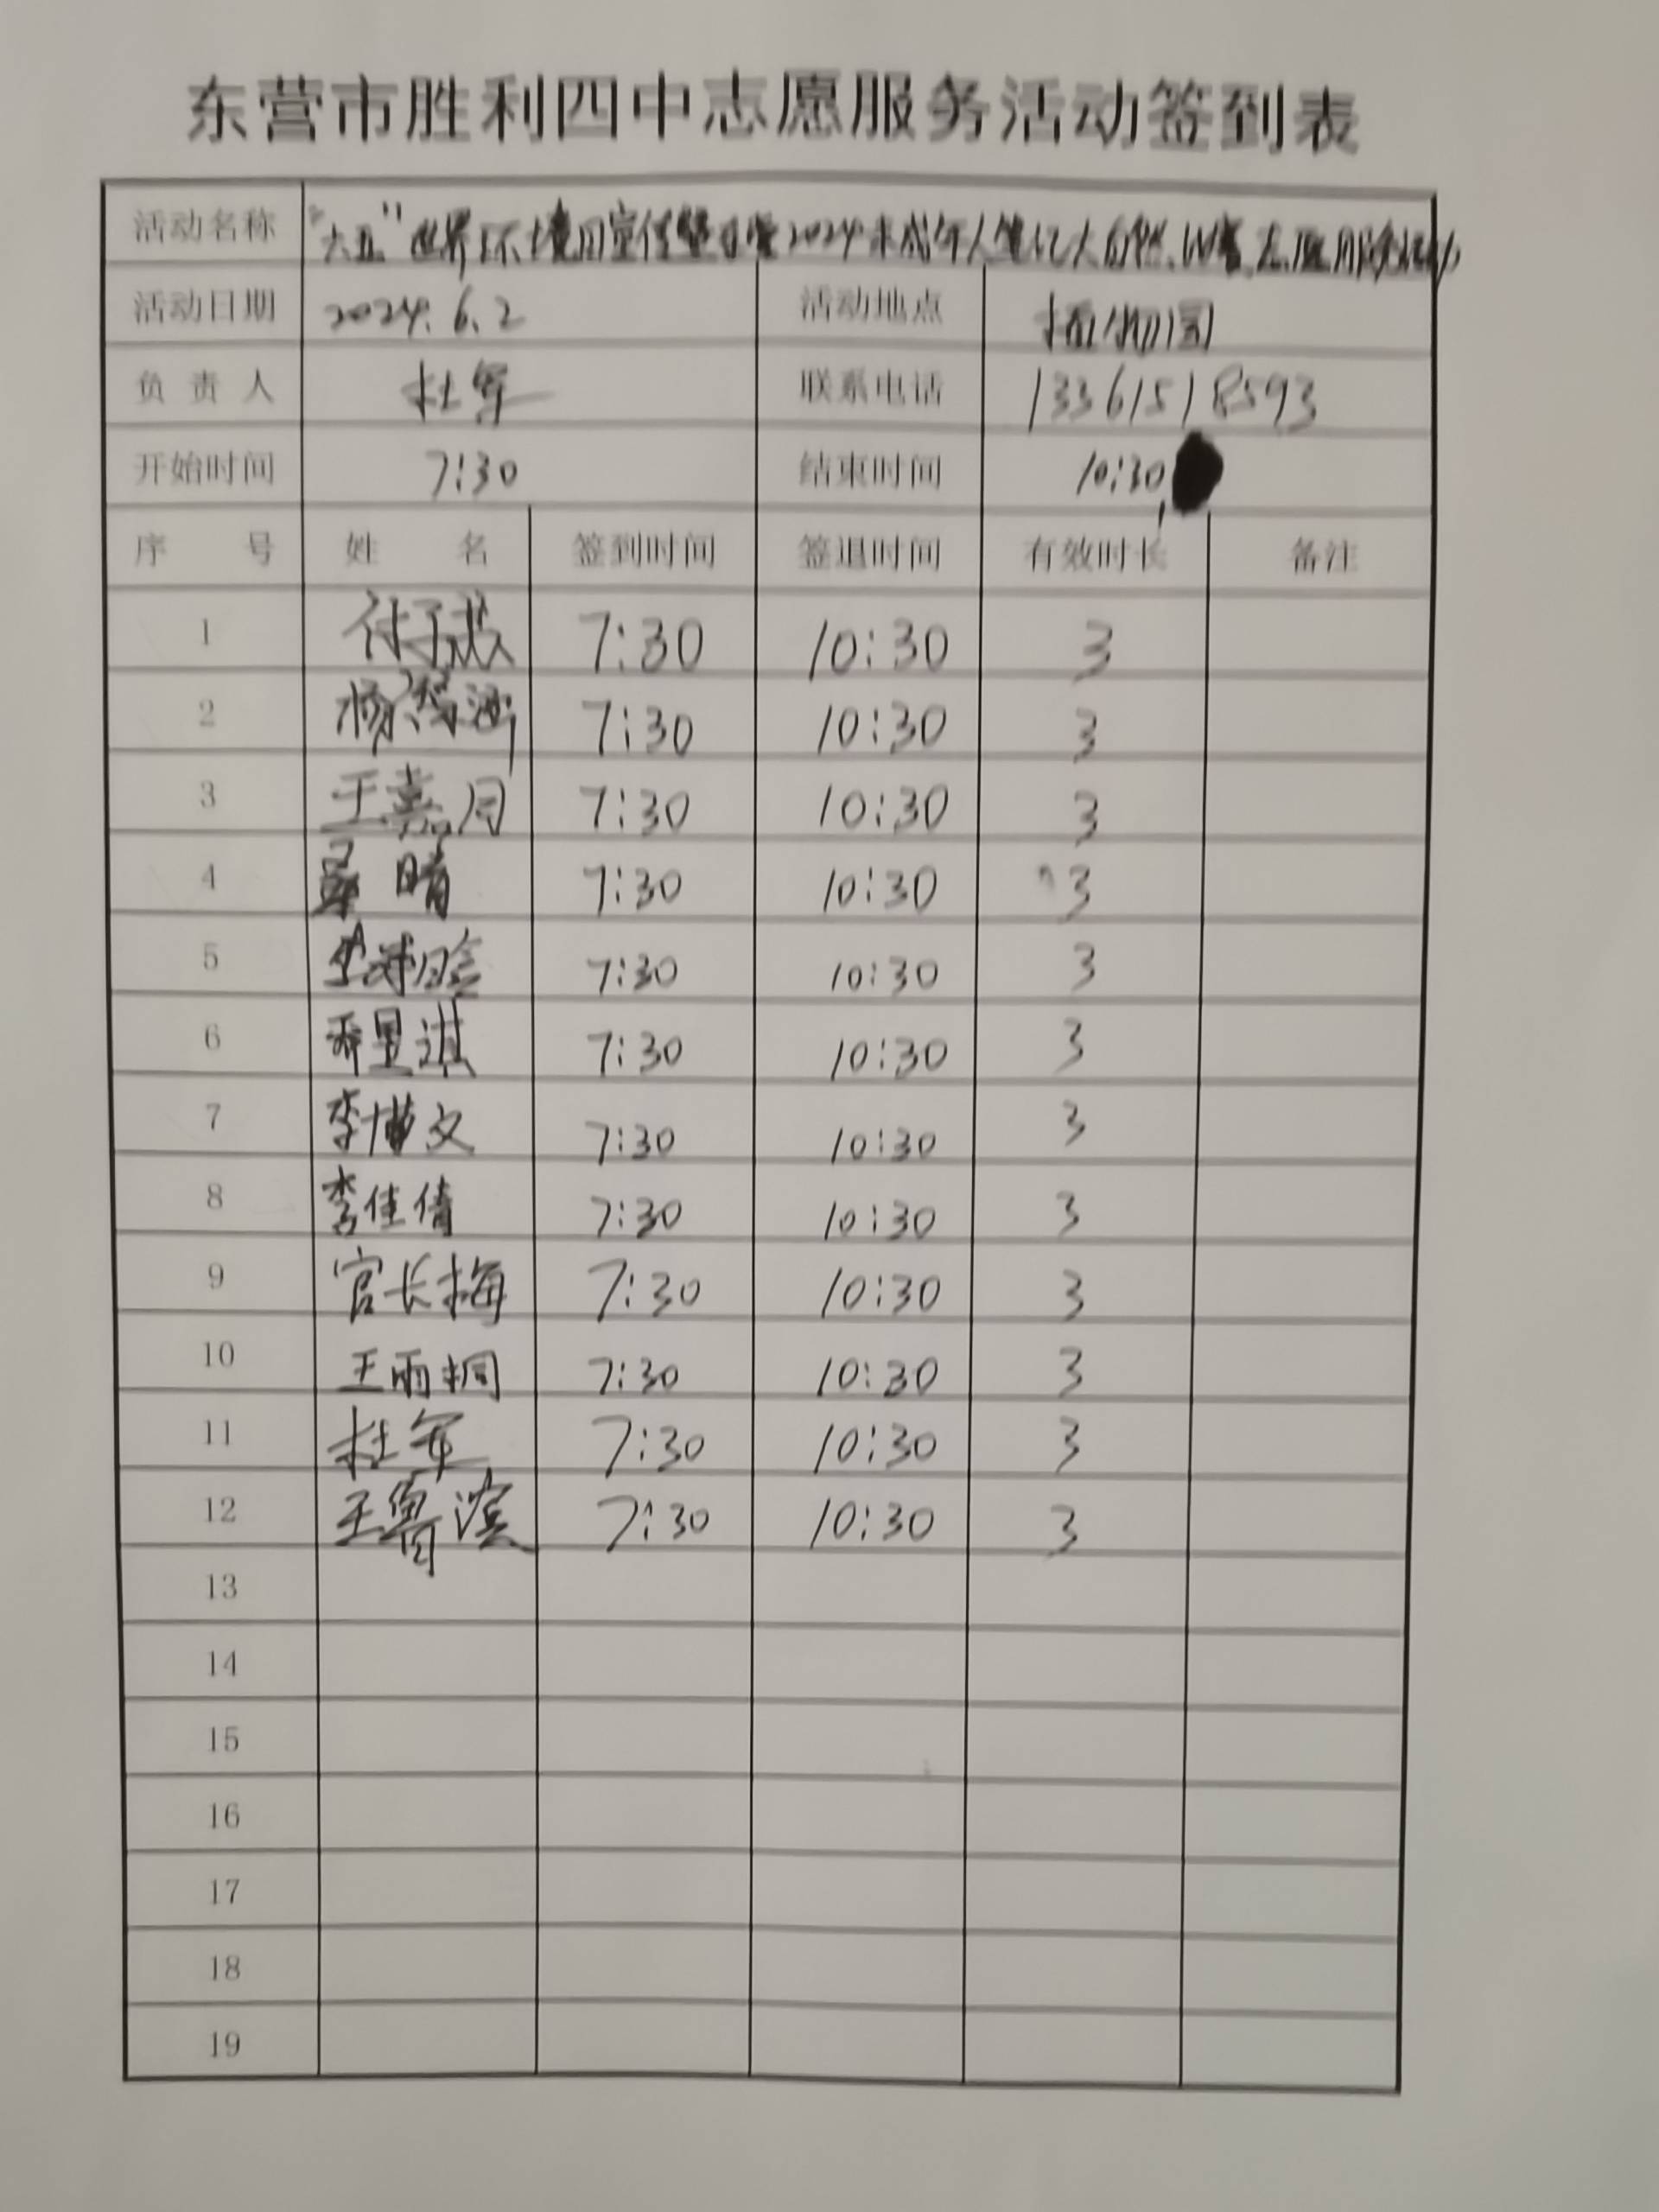 东营市胜利四中志愿服务活动签到表
活动名称 "六五"世界环境日宣传暨 2024未成年人 大自然 志愿服务活动
活动日期 2024.6.2 活动地点 植物园
负责人 杜军 联系电话 13361518593
开始时间 7:30 结束时间 10:30
序号 姓名 签到时间 签退时间 有效时长 备注
1 付子 7:30 10:30 3
2 杨 涵 7:30 10:30 3
3 于嘉 7:30 10:30 3
4 晴 7:30 10:30 3
5 晗 7:30 10:30 3
6 淇 7:30 10:30 3
7 李博文 7:30 10:30 3
8 李佳倩 7:30 10:30 3
9 官长梅 7:30 10:30 3
10 王雨桐 7:30 10:30 3
11 杜军 7:30 10:30 3
12 王鲁滨 7:30 10:30 3
13
14
15
16
17
18
19